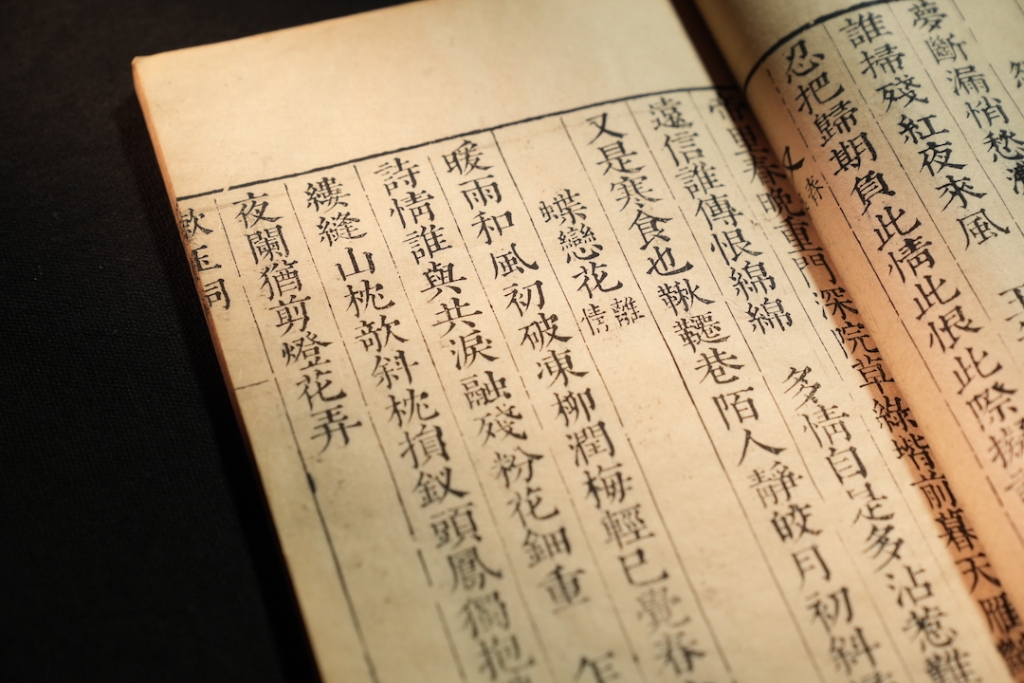 夢斷漏悄愁濃
誰掃殘紅夜來風
忍把歸期負此情此恨此際擬
又 春
帝里春晚重門深院草綠堦前暮天雁
遠信誰傳恨綿綿 多情自是多沾惹難
又是寒食也鞦韆巷陌人靜皎月初斜
蝶戀花 離情
暖雨和風初破凍柳潤梅輕已覺春
詩情誰與共淚融殘粉花鈿重 乍
縷縫山枕欹斜枕損釵頭鳳獨抱
夜闌猶剪燈花弄
漱玉詞